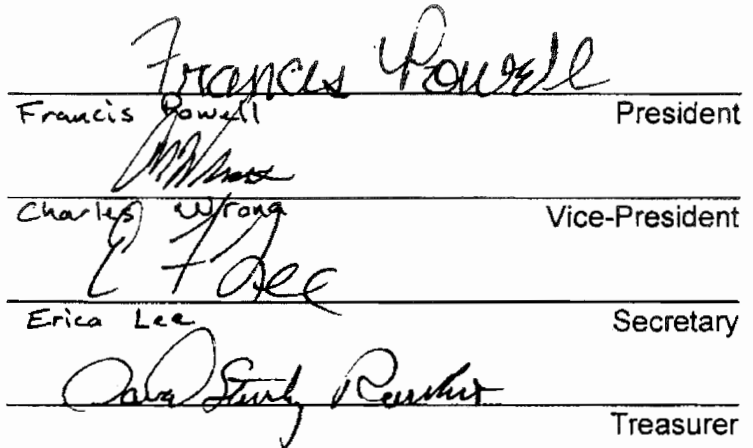 Francis Powell
Francis Powell President
Charles Wrong Vice-President
E F Lee
Erica Lee Secretary
Treasurer